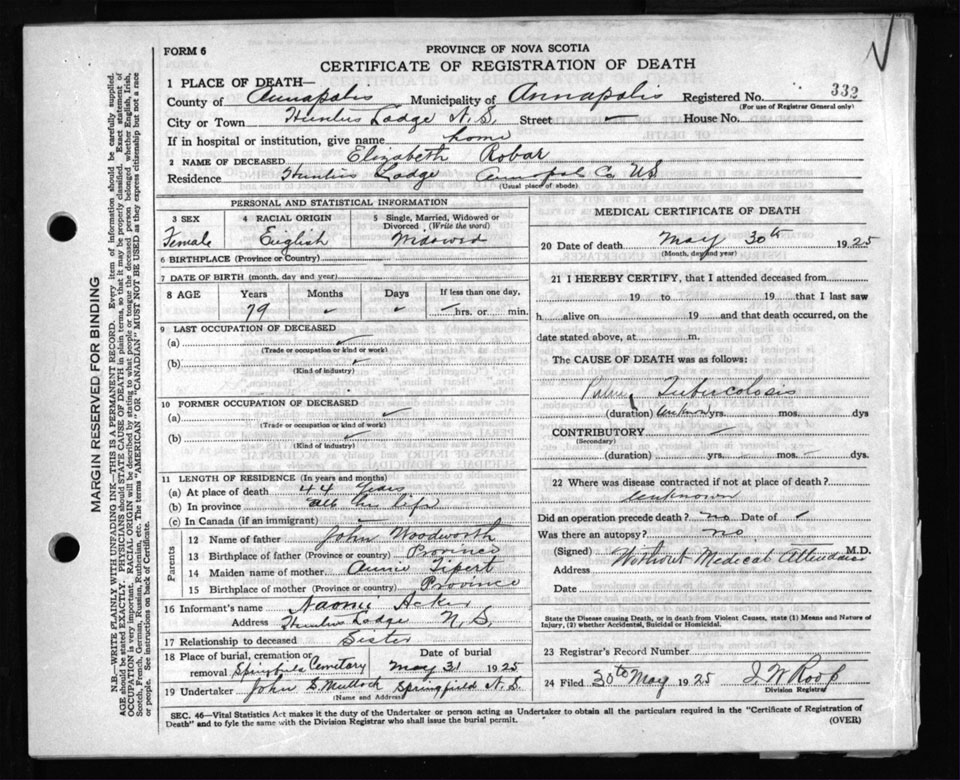 FORM 6
PROVINCE OF NOVA SCOTIA
CERTIFICATE OF REGISTRATION OF DEATH
332
1 PLACE OF DEATH—
County of Annapolis Municipality of Annapolis Registered No.
(For use of Registrar General only)
City or Town Lodge N.S. Street House No.
If in hospital or institution, give name home
2 NAME OF DECEASED Elizabeth Robar
Residence Lodge Co
(Usual place of abode)
PERSONAL AND STATISTICAL INFORMATION
3 SEX 4 RACIAL ORIGIN 5 Single, Married, Widowed or Divorced (Write the word)
Female English Widowed
6 BIRTHPLACE (Province or Country)
7 DATE OF BIRTH (month, day and year)
8 AGE Years Months Days If less than one day,
79 hrs. or min.
9 LAST OCCUPATION OF DECEASED
(a)
(Trade or occupation or kind of work)
(b)
(Kind of industry)
10 FORMER OCCUPATION OF DECEASED
(a)
(Trade or occupation or kind of work)
(b)
(Kind of industry)
11 LENGTH OF RESIDENCE (In years and months)
(a) At place of death 44 years
(b) In province all her life
(c) In Canada (if an immigrant)
Parents
12 Name of father John Woodworth
13 Birthplace of father (Province or country) Province
14 Maiden name of mother Annie
15 Birthplace of mother (Province or country) Province
16 Informant's name Naomi Acker
Address Lodge N.S.
17 Relationship to deceased Sister
18 Place of burial, cremation or removal Date of burial
Cemetary May 31 1925
19 Undertaker John S. Springfield N.S.
(Name and Address)
MEDICAL CERTIFICATE OF DEATH
20 Date of death May 30th 1925
(Month, day and year)
21 I HEREBY CERTIFY, that I attended deceased from
19 to 19 that I last saw
h alive on 19 and that death occurred, on the
date stated above, at m.
The CAUSE OF DEATH was as follows:
Tuberculosis
(duration) unknown yrs. mos. dys
CONTRIBUTORY
(Secondary)
(duration) yrs. mos. dys
22 Where was disease contracted if not at place of death?
unknown
Did an operation precede death? no Date of
Was there an autopsy? no
(Signed) Without Medical Attendance M.D.
Address
Date
State the Disease causing Death, or in death from Violent Causes, state (1) Means and Nature of
Injury, (2) whether Accidental, Suicidal or Homicidal.
23 Registrar's Record Number
24 Filed 30th May 1925 J W Roop
Division Registrar
SEC. 46—Vital Statistics Act makes it the duty of the Undertaker or person acting as Undertaker to obtain all the particulars required in the "Certificate of Registration of
Death" and to fyle the same with the Division Registrar who shall issue the burial permit. (OVER)
MARGIN RESERVED FOR BINDING
N.B.—WRITE PLAINLY WITH UNFADING INK—THIS IS A PERMANENT RECORD. Every item of information should be carefully supplied.
AGE should be stated EXACTLY. PHYSICIANS should STATE CAUSE OF DEATH in plain terms, so that it may be properly classified. Exact statement of
OCCUPATION is very important. RACIAL ORIGIN will be described by stating to what people or tongue the deceased person belonged whether English, Irish,
Scotch, French, German, Russian, Ruthenian, etc. The terms "AMERICAN" OR "CANADIAN" MUST NOT BE USED as they express citizenship but not a race
or people. See instructions on back of Certificate.